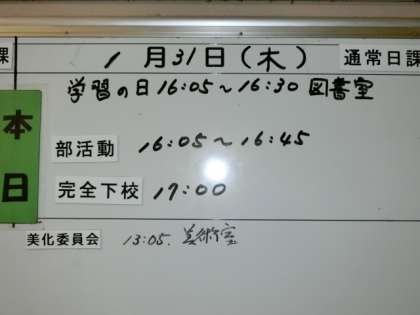 課
1月31日(木)
通常日課
本日
学習の日16:05~16:30 図書室
部活動 16:05~16:45
完全下校 17:00
美化委員会 13:05. 美術室